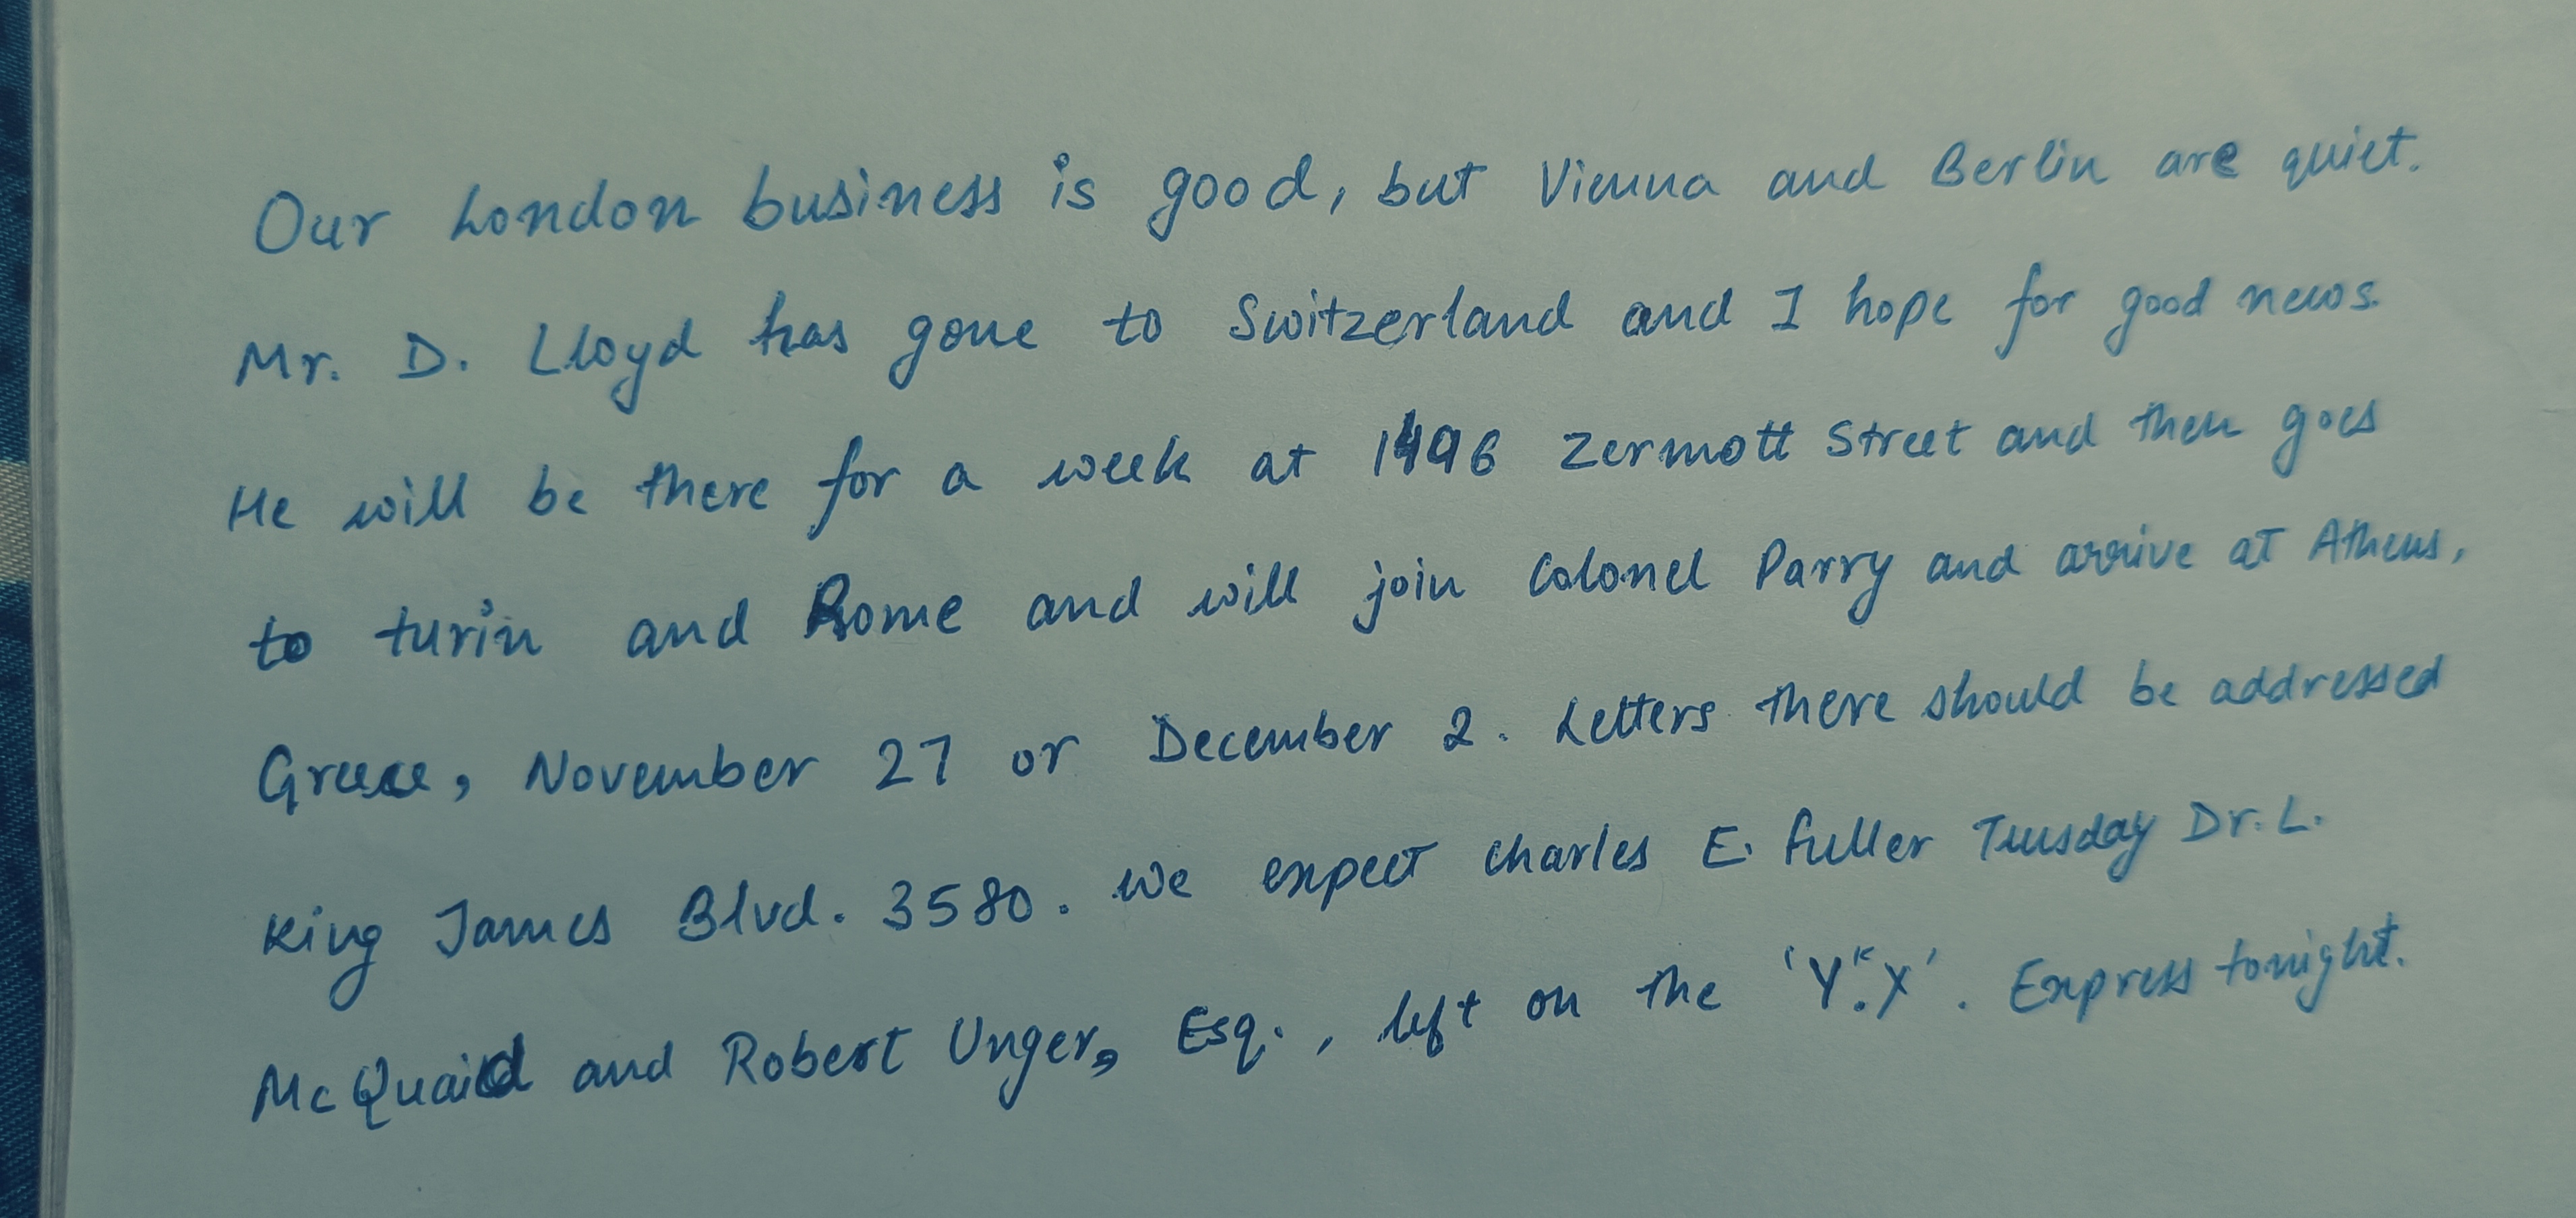 Our London business is good, but Vienna and Berlin are quiet.
Mr. D. Lloyd has gone to Switzerland and I hope for good news.
He will be there for a week at 1496 Zermott Street and then goes
to turin and Rome and will join Colonel Parry and arrive at Athens,
Greece, November 27 or December 2. Letters there should be addressed
King James Blvd. 3580. We expect Charles E. Fuller Tuesday Dr. L.
McQuaid and Robert Unger, Esq., left on the 'Y.X'. Express tonight.